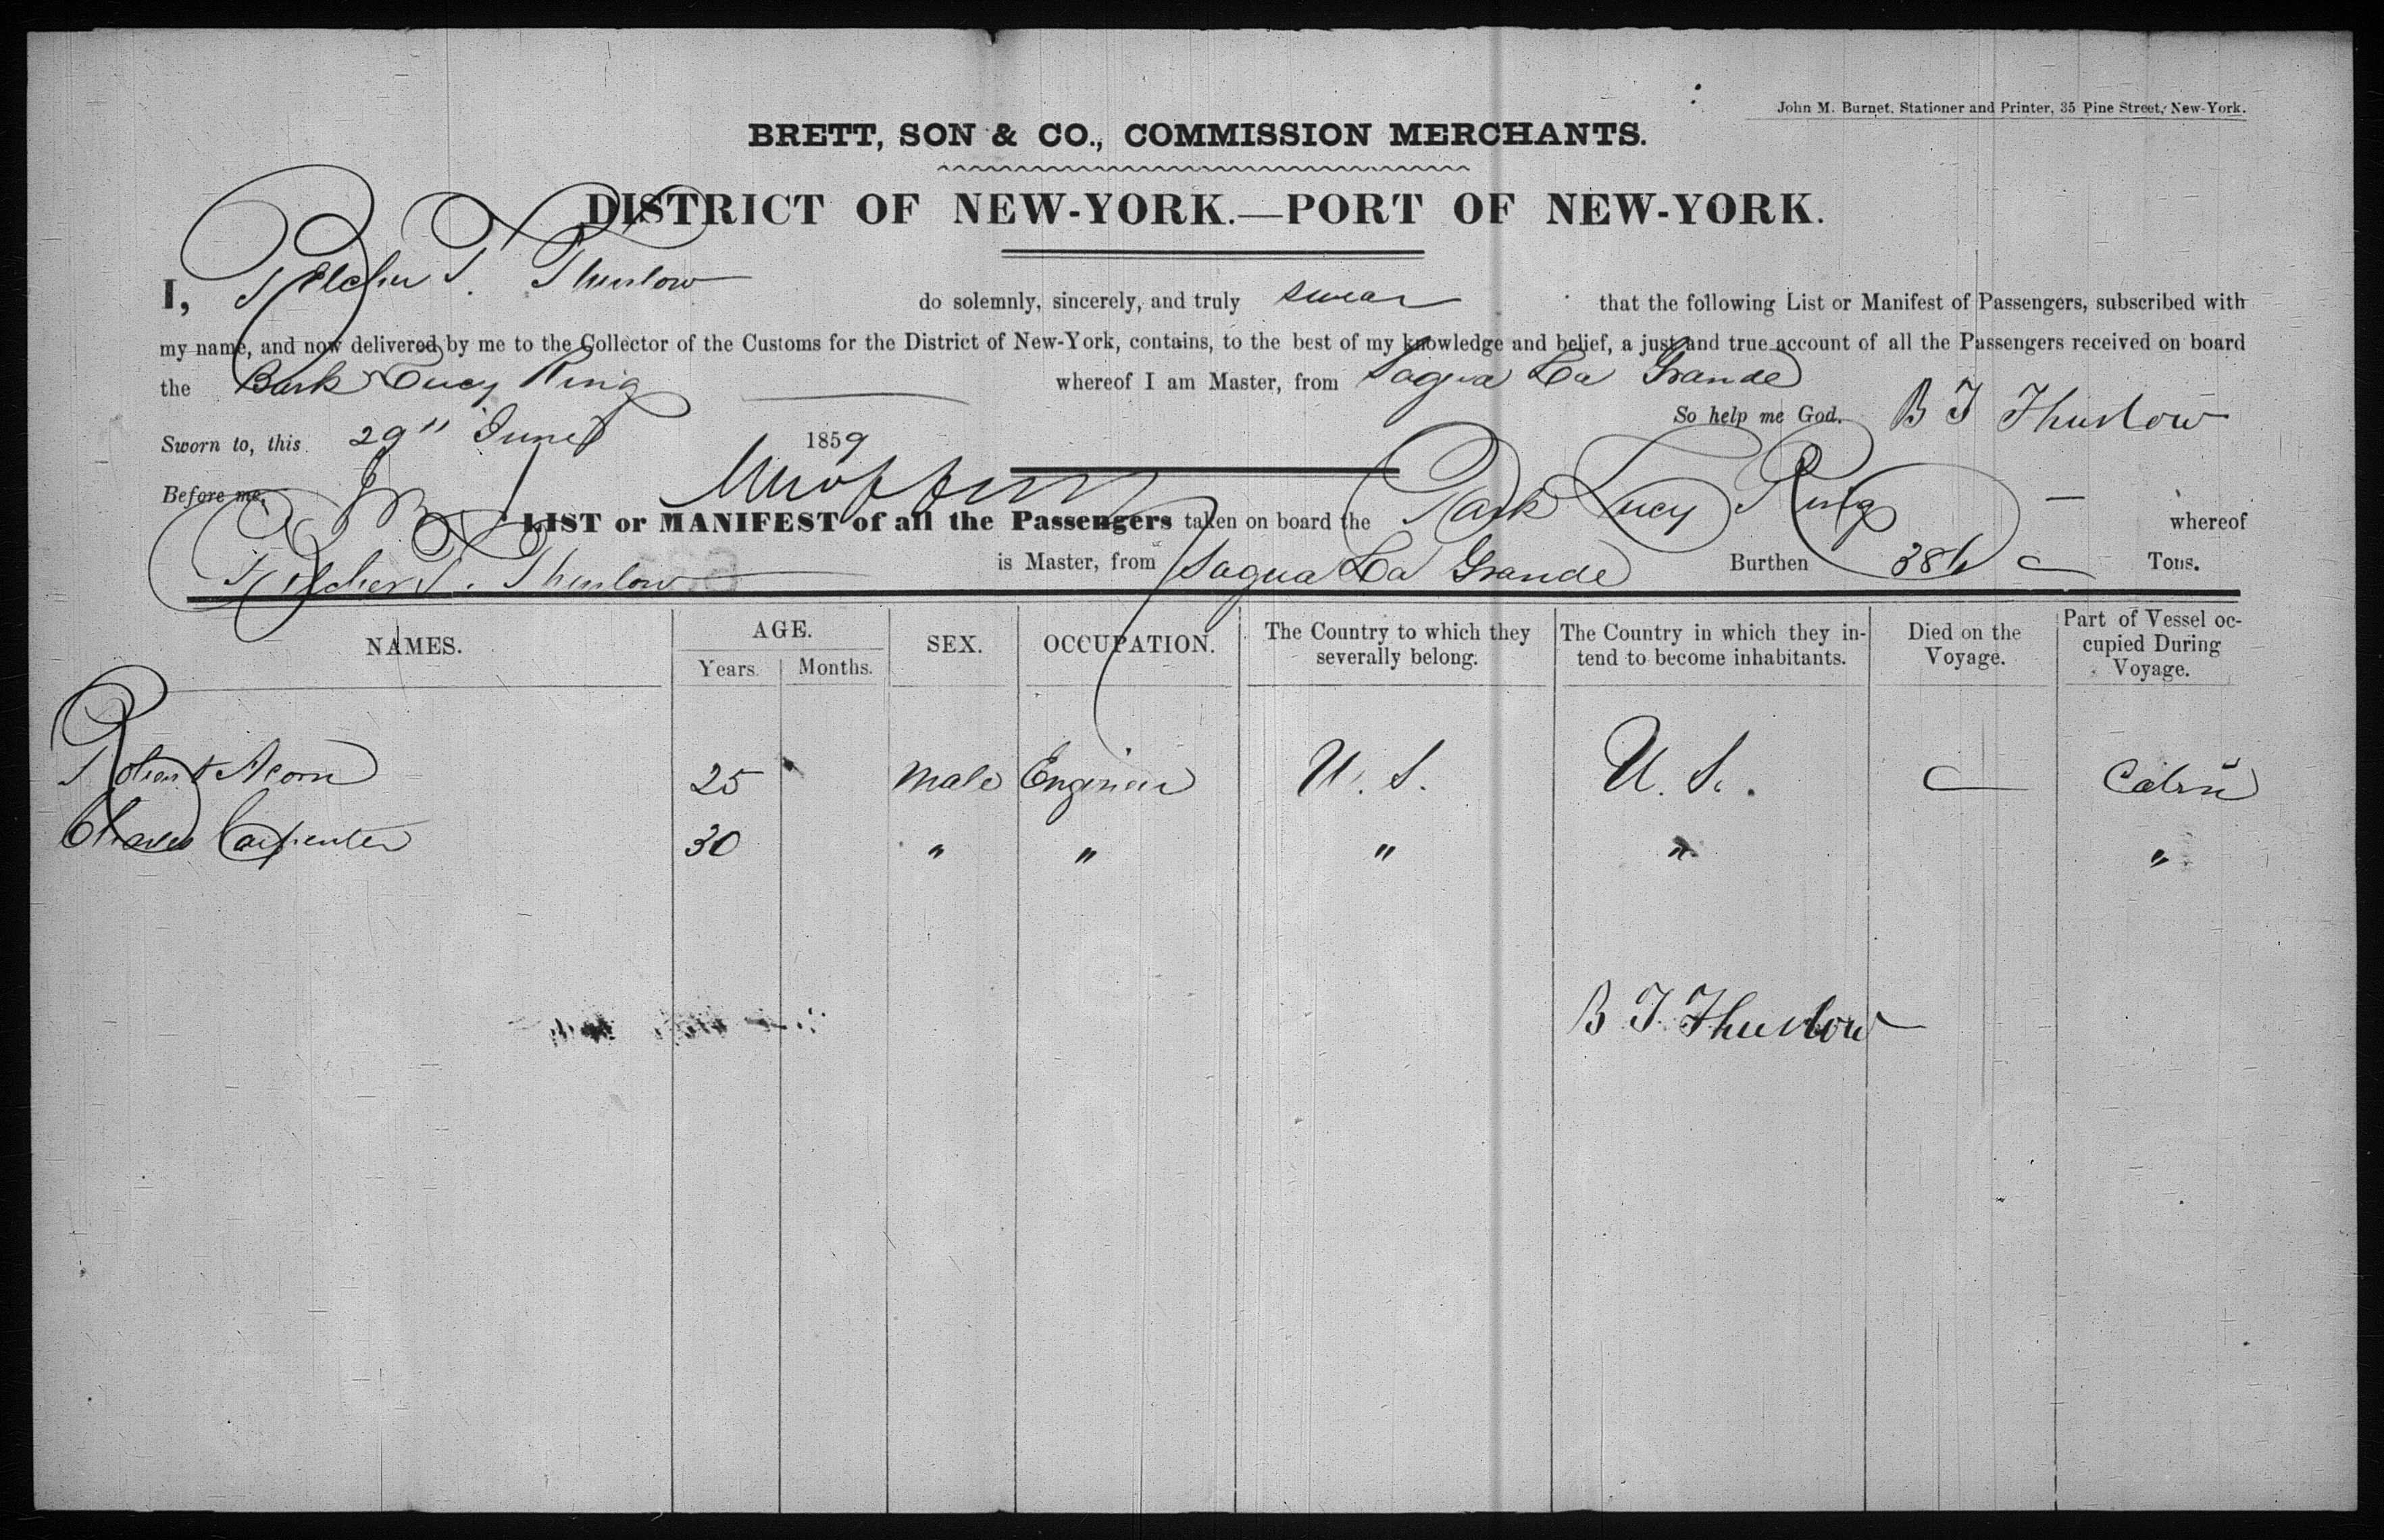 John M. Burnet, Stationer and Printer, 35 Pine Street, New-York.
BRETT, SON & CO., COMMISSION MERCHANTS.
DISTRICT OF NEW-YORK.—PORT OF NEW-YORK.
I, Belcher T. Thurlow do solemnly, sincerely, and truly swear that the following List or Manifest of Passengers, subscribed with
my name, and now delivered by me to the Collector of the Customs for the District of New-York, contains, to the best of my knowledge and belief, a just and true account of all the Passengers received on board
the Bark Lucy Ring whereof I am Master, from Sagua La Grande
So help me God. B T Thurlow
Sworn to, this 29" June 1859
Before me,
LIST or MANIFEST of all the Passengers taken on board the Bark Lucy Ring whereof
Belcher T. Thurlow is Master, from Sagua La Grande Burthen 386 Tons.
NAMES. AGE. Years. Months. SEX. OCCUPATION. The Country to which they severally belong. The Country in which they intend to become inhabitants. Died on the Voyage. Part of Vessel occupied During Voyage.
Robert Acorn 25 Male Engineer U. S. U. S. — Cabin
Charles Carpenter 30 " " " " "
B T Thurlow